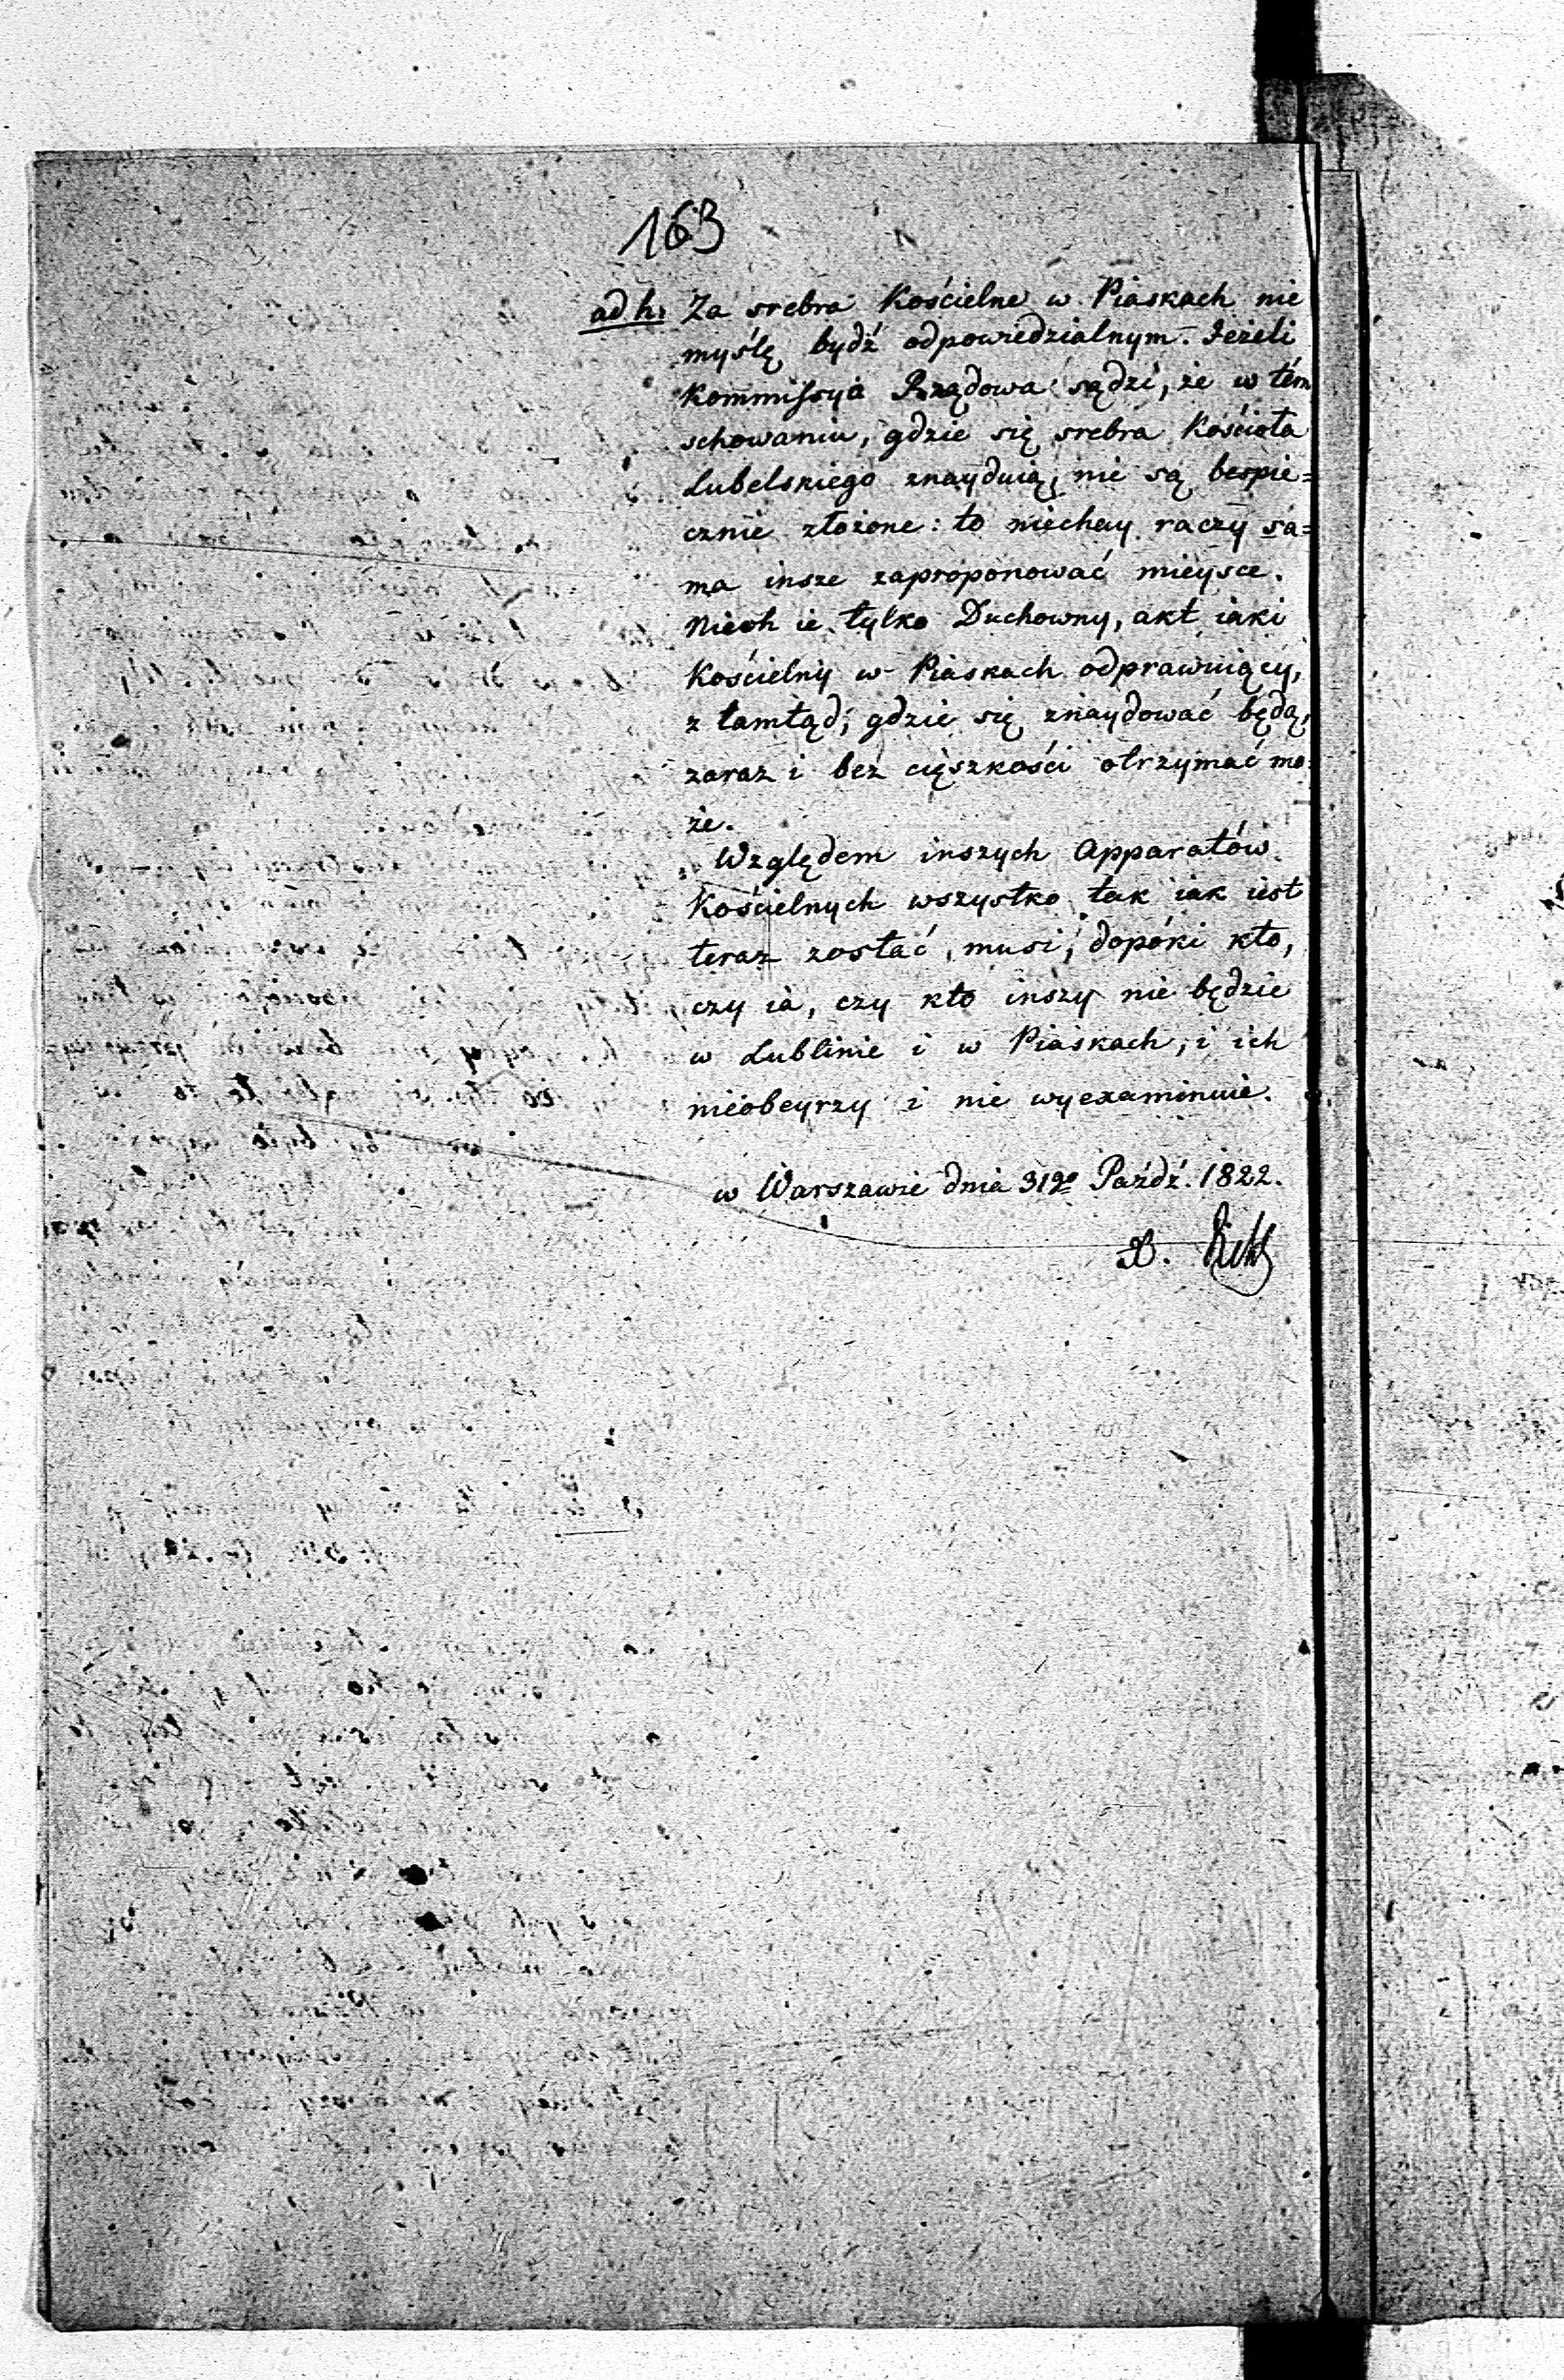 163
ad h: Za srebra Kościelne w Piaskach nie
myślę bydź odpowiedzialnym. Jeżeli
Kommissya Rządowa sądzi, że w tém
schowaniu, gdzie się srebra Kościoła
Lubelskiego znayduią, nie są bespie=
cznie złożone: to niechay raczy sa=
ma insze zaproponować mieysce.
Niech ie tylko Duchowny, akt iaki
Kościelny w Piaskach odprawuiący,
z tamtąd, gdzie się znaydować będą,
zaraz i bez cięszkości otrzymać mo=
że.
Względem inszych Apparatów
Kościelnych wszystko tak iak iest
teraz zostać musi, dopóki kto,
czy ia, czy kto inszy nie będzie
w Lublinie i w Piaskach, i ich
nieobeyrzy i nie wyexaminuie.
w Warszawie dnia 31go Paźdź. 1822.
X.